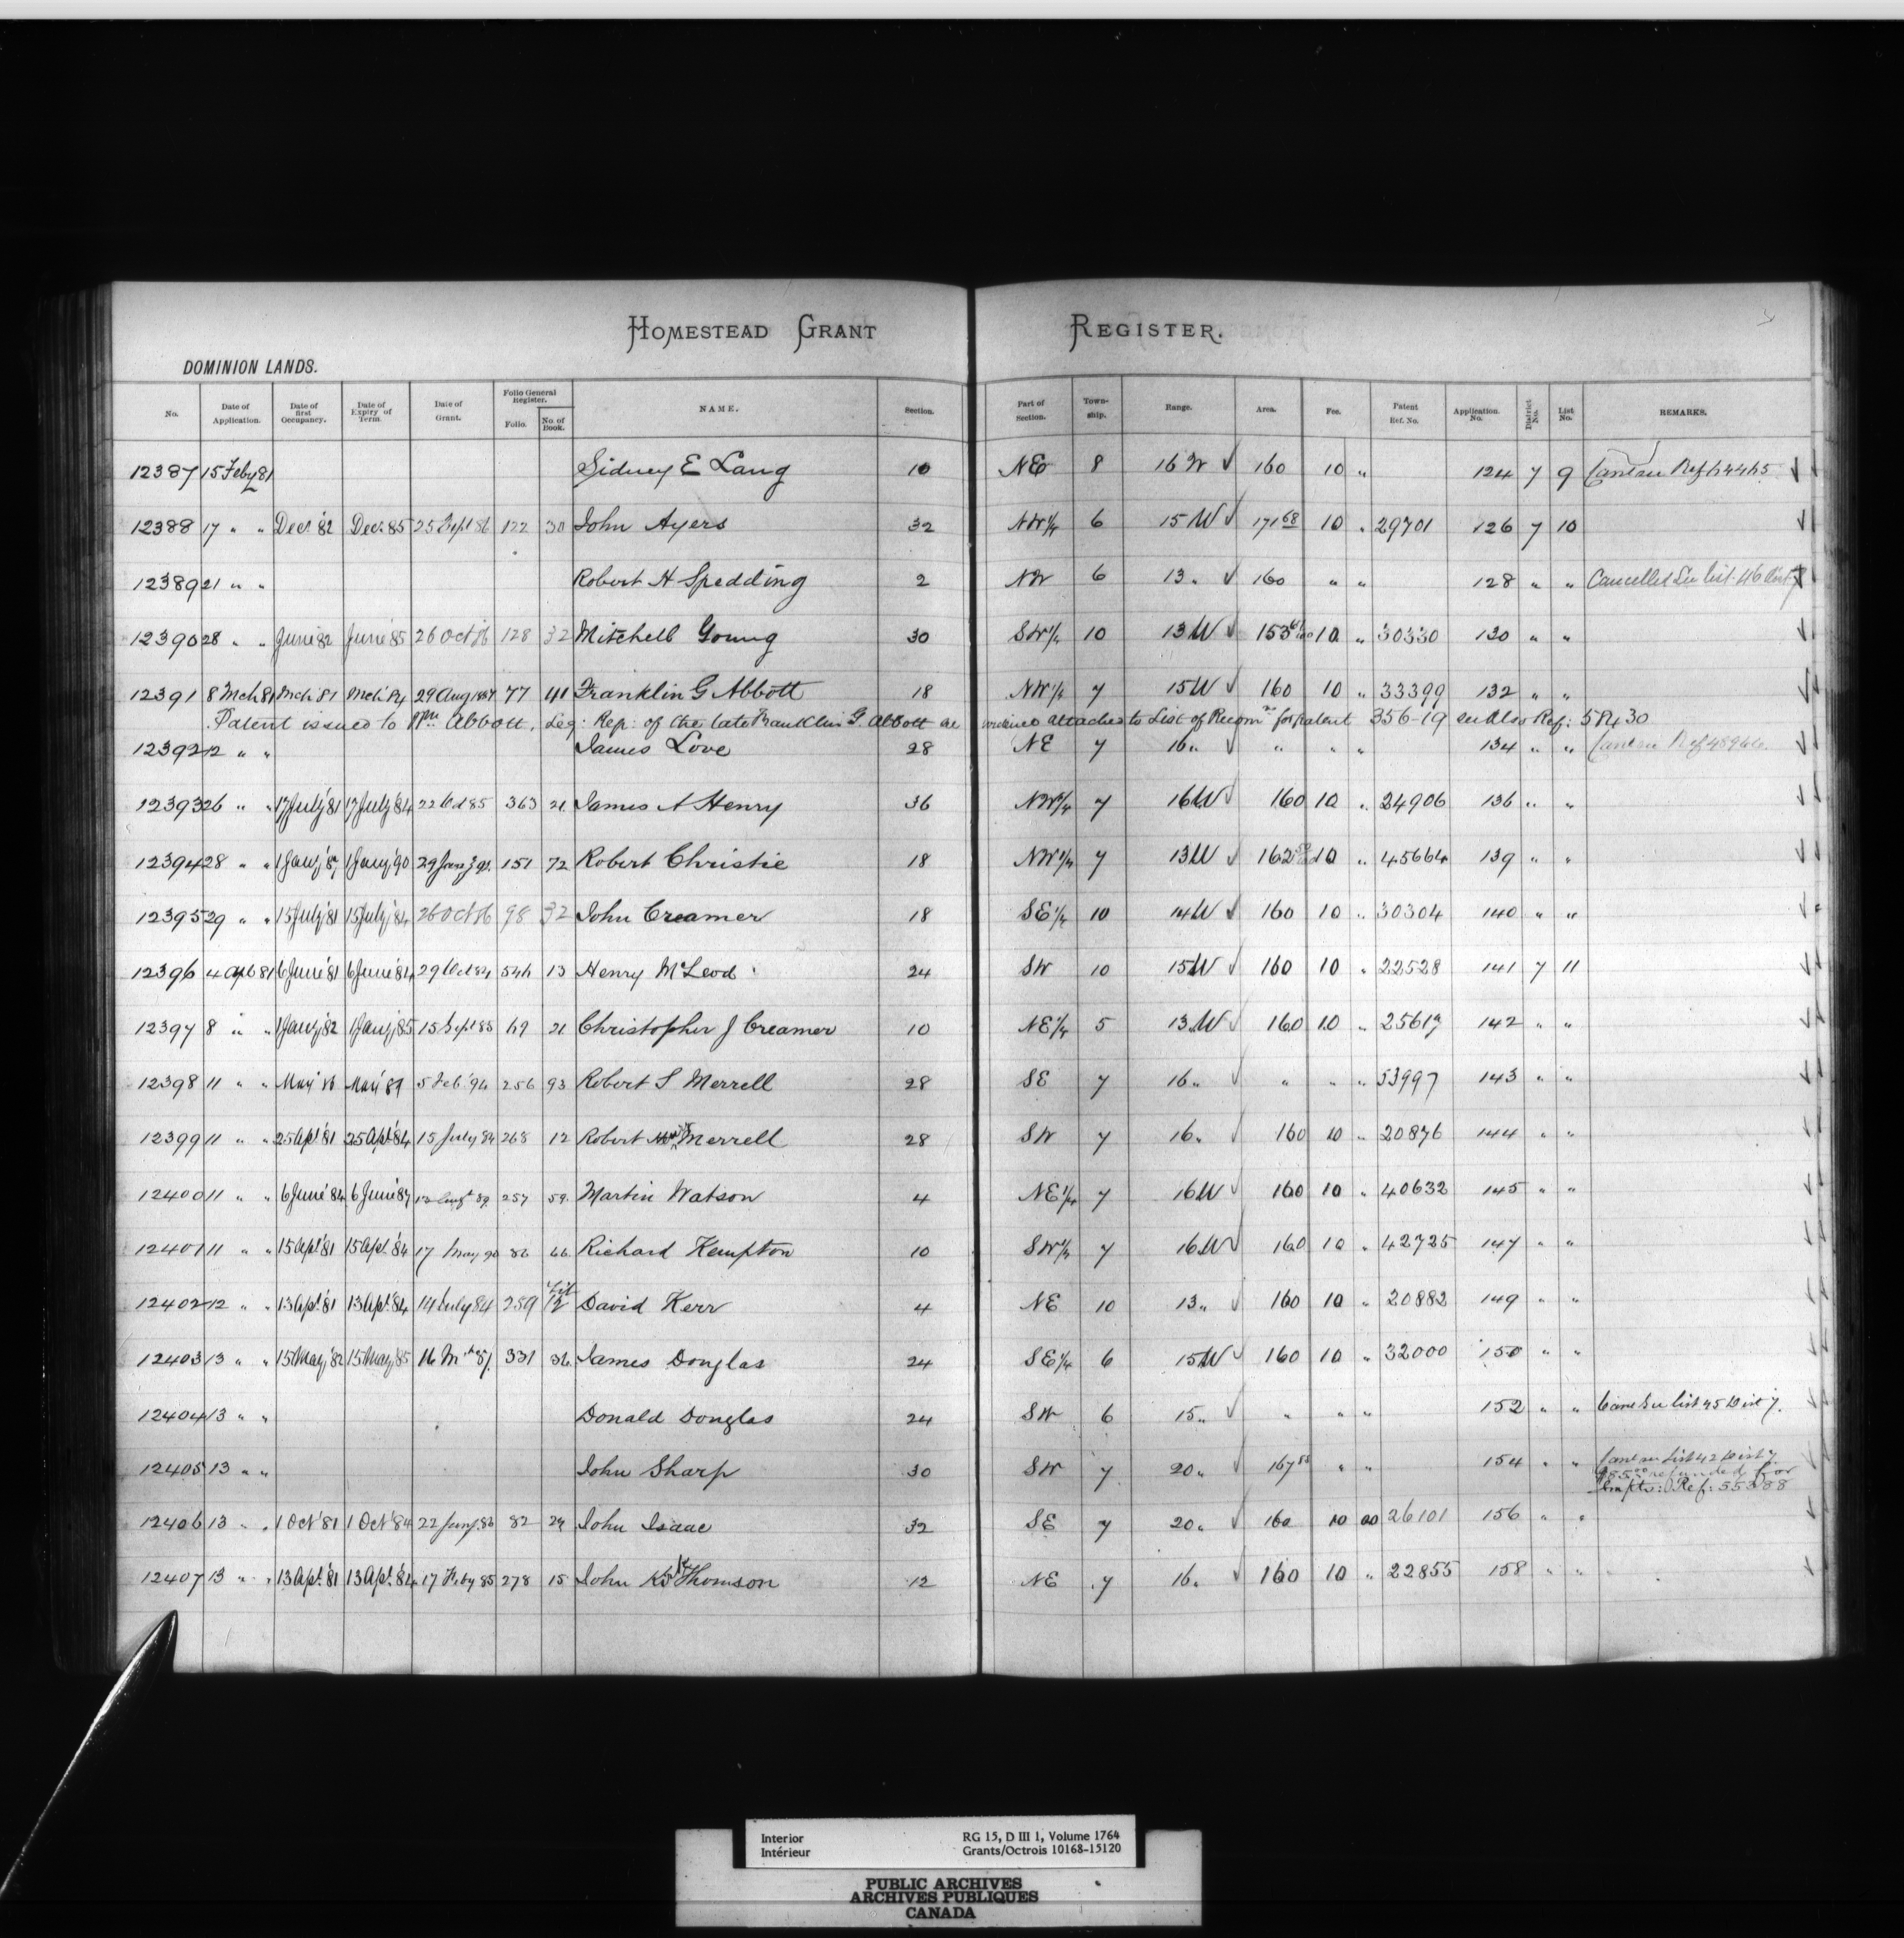 HOMESTEAD GRANT REGISTER.
DOMINION LANDS.
No. Date of Application. Date of first Occupancy. Date of Expiry of Term. Date of Grant. Folio General Register. Folio. No. of Book. NAME. Section. Part of Section. Township. Range. Area. Fee. Patent Ref. No. Application. No. District No. List No. REMARKS.
12387 15 Feby 81 Sidney E Lang 10 NE 8 16 W ✓ 160 10 " 124 7 9
12388 17 " " Decr '82 Decr 85 25 Sept 86 122 30 John Ayers 32 NW¼ 6 15 W ✓ 171 68 10 " 29701 126 7 10
12389 21 " " Robert H Spedding 2 NW 6 13 " ✓ 160 " " 128 " " Cancelled See list 46 Dist 7
12390 28 " " June '82 June '85 26 Oct 86 128 32 Mitchell Young 30 SW¼ 10 13 W ✓ 153 10 " 30330 130 " "
12391 8 Mch 81 Mch '81 Mch '84 29 Aug 1887 77 41 Franklin G Abbott 18 NW¼ 7 15 W ✓ 160 10 " 33399 132 " "
Patent issued to Wm Abbott, Leg: Rep: of the late Franklin G. Abbott attached to List of Recomns for patent 356-19 see also Ref: 58430
12392 12 " " James Love 28 NE 7 16 " ✓ " " " 134 " "
12393 26 " " 17 July '81 17 July '84 22 Oct 85 363 21 James A Henry 36 NW¼ 7 16 W ✓ 160 10 " 24906 136 " "
12394 28 " " 1 Jany '87 1 Jany '90 29 151 72 Robert Christie 18 NW¼ 7 13 W ✓ 162 10 " 45664 139 " "
12395 29 " " 15 July '81 15 July '84 26 Oct 86 98 32 John Creamer 18 SE¼ 10 14 W ✓ 160 10 " 30304 140 " "
12396 4 Apl 81 6 June '81 6 June '84 29 Oct 84 546 13 Henry McLeod 24 SW 10 15 W ✓ 160 10 " 22528 141 7 11
12397 8 " " 1 Jany '82 1 Jany '85 15 Sept 85 69 21 Christopher J Creamer 10 NE¼ 5 13 W ✓ 160 10 " 25617 142 " "
12398 11 " " May '86 May '89 5 Feb '94 256 93 Robert S Merrell 28 SE 7 16 " ✓ " " " 53997 143 " "
12399 11 " " 25 Apl '81 25 Apl '84 15 July 84 268 12 Robert Merrell 28 SW 7 16 " ✓ 160 10 " 20876 144 " "
12400 11 " " 6 June '84 6 June '87 257 59 Martin Watson 4 NE¼ 7 16 W ✓ 160 10 " 40632 145 " "
12401 11 " " 15 Apl '81 15 Apl '84 17 May 90 86 66 Richard Kempton 10 SW¼ 7 16 W ✓ 160 10 " 42725 147 " "
12402 12 " " 13 Apl '81 13 Apl '84 14 July 84 259 12 David Kerr 4 NE 10 13 " ✓ 160 10 " 20882 149 " "
12403 13 " " 15 May '82 15 May '85 16 Mch 87 331 36 James Douglas 24 SE¼ 6 15 W ✓ 160 10 " 32000 150 " "
12404 13 " " Donald Douglas 24 SW 6 15 " ✓ " " " 152 " " Canc See list 45 Dist 7.
12405 13 " " John Sharp 30 SW 7 20 " ✓ 167 88 " " 154 " " Canc see List 42 Dist 7
refunded for
Ref: 55288
12406 13 " " 1 Oct '81 1 Oct '84 22 Jany 86 82 24 John Isaac 32 SE 7 20 " ✓ 160 10 00 26101 156 " "
12407 13 " " 13 Apl '81 13 Apl '84 17 Feby 85 278 15 John Thomson 12 NE 7 16 " ✓ 160 10 " 22855 158 " "
Interior RG 15, D III 1, Volume 1764
Intérieur Grants/Octrois 10168-15120
PUBLIC ARCHIVES
ARCHIVES PUBLIQUES
CANADA